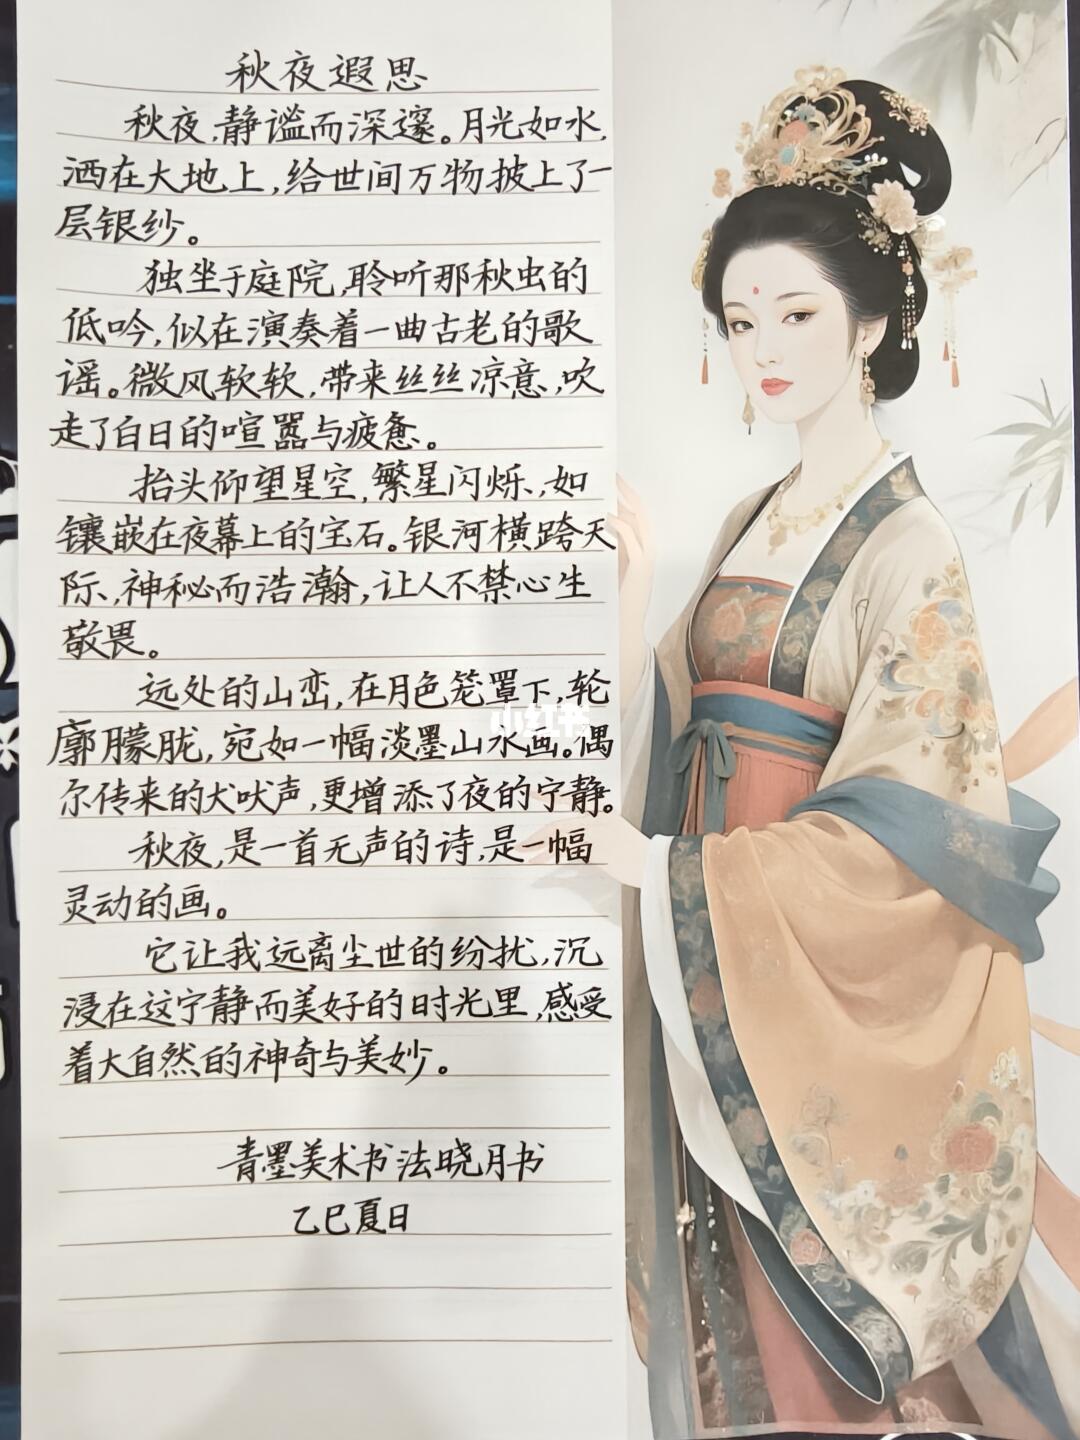 秋夜遐思
秋夜,静谧而深邃。月光如水,
洒在大地上,给世间万物披上了一
层银纱。
独坐于庭院,聆听那秋虫的
低吟,似在演奏着一曲古老的歌
谣。微风软软,带来丝丝凉意,吹
走了白日的喧嚣与疲惫。
抬头仰望星空,繁星闪烁,如
镶嵌在夜幕上的宝石。银河横跨天
际,神秘而浩瀚,让人不禁心生
敬畏。
远处的山峦,在月色笼罩下,轮
廓朦胧,宛如一幅淡墨山水画。偶
尔传来的犬吠声,更增添了夜的宁静。
秋夜,是一首无声的诗,是一幅
灵动的画。
它让我远离尘世的纷扰,沉
浸在这宁静而美好的时光里,感受
着大自然的神奇与美妙。
青墨美术书法晓月书
乙巳夏日
小红书